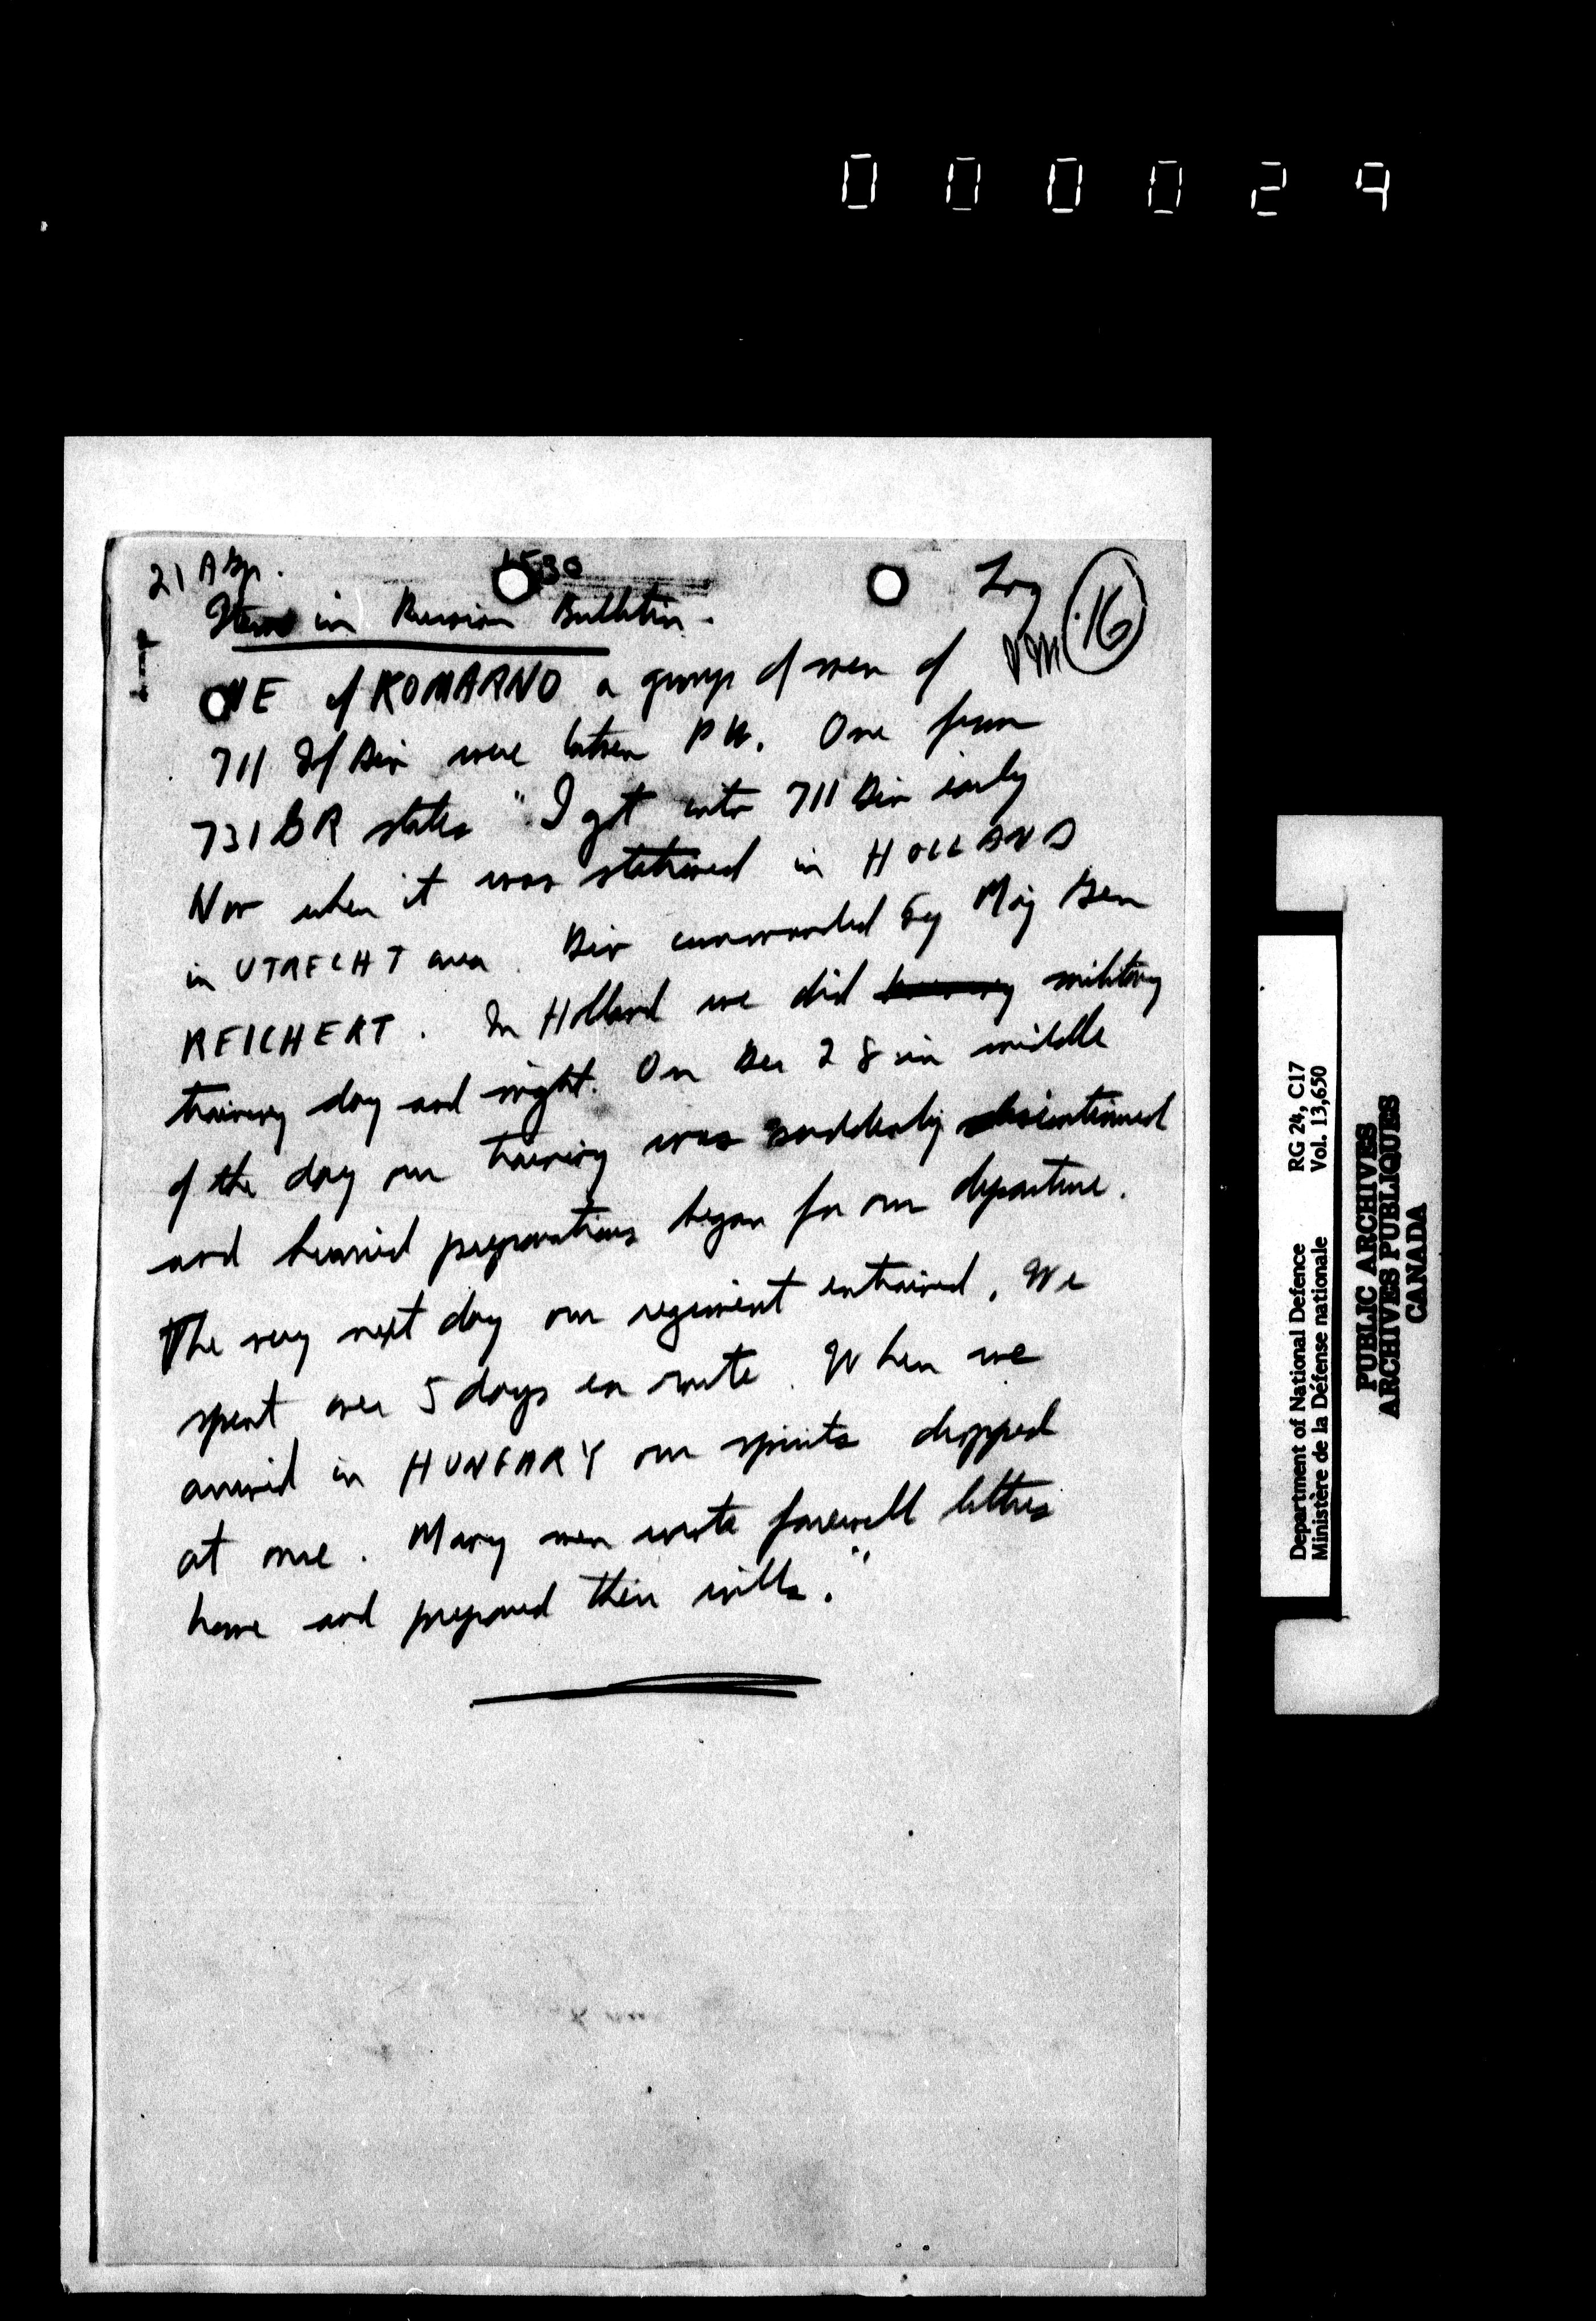 000029
21 A Gp.
1530
Log
16
Item in Russian Bulletin.
NE of KOMARNO a group of men of
711 Inf Div were taken PW. One from
731 GR states "I got into 711 Div early
Nov when it was stationed in HOLLAND
in UTRECHT area. Div commanded by Maj Gen
REICHERT. In Holland we did military
training day and night. On Dec 28 in middle
of the day our training was suddenly discontinued
and hurried preparations began for our departure.
The very next day our regiment entrained. We
spent over 5 days en route. When we
arrived in HUNGARY our spirits dropped
at once. Many men wrote farewell letters
home and prepared their wills."
Department of National Defence RG 24, C17
Ministère de la Défense nationale Vol. 13,650
PUBLIC ARCHIVES
ARCHIVES PUBLIQUES
CANADA